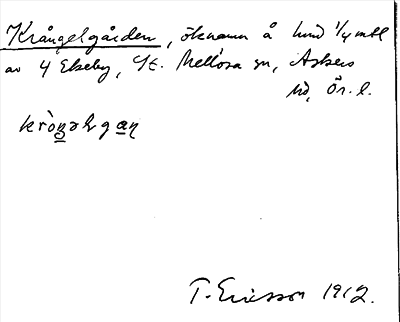 Krångelgården, öknamn å hmd 1/4 mtl
av 4 Ekeby, St. Mellösa sn, Askers
hd, Ör. l.
kròŋəlgaṇ
T. Ericsson 1912.